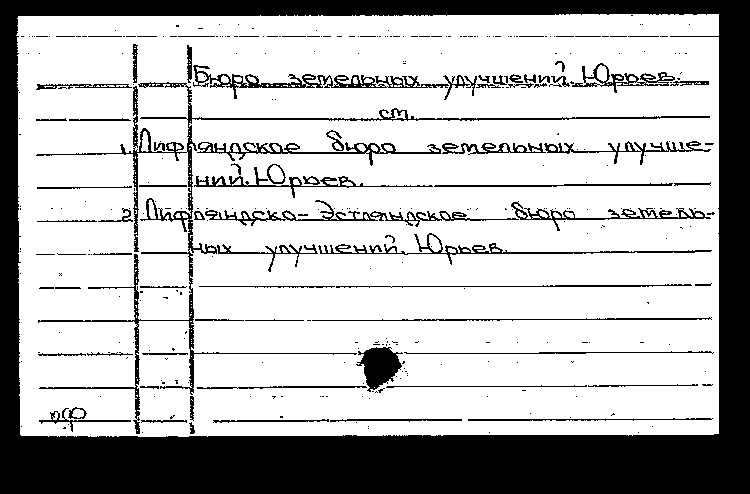 Бюро земельных улучшений. Юрьев.
см.
1. Лифляндское бюро земельных улучше-
ний. Юрьев.
2. Лифляндско-Эстляндское бюро земель-
ных улучшений. Юрьев.